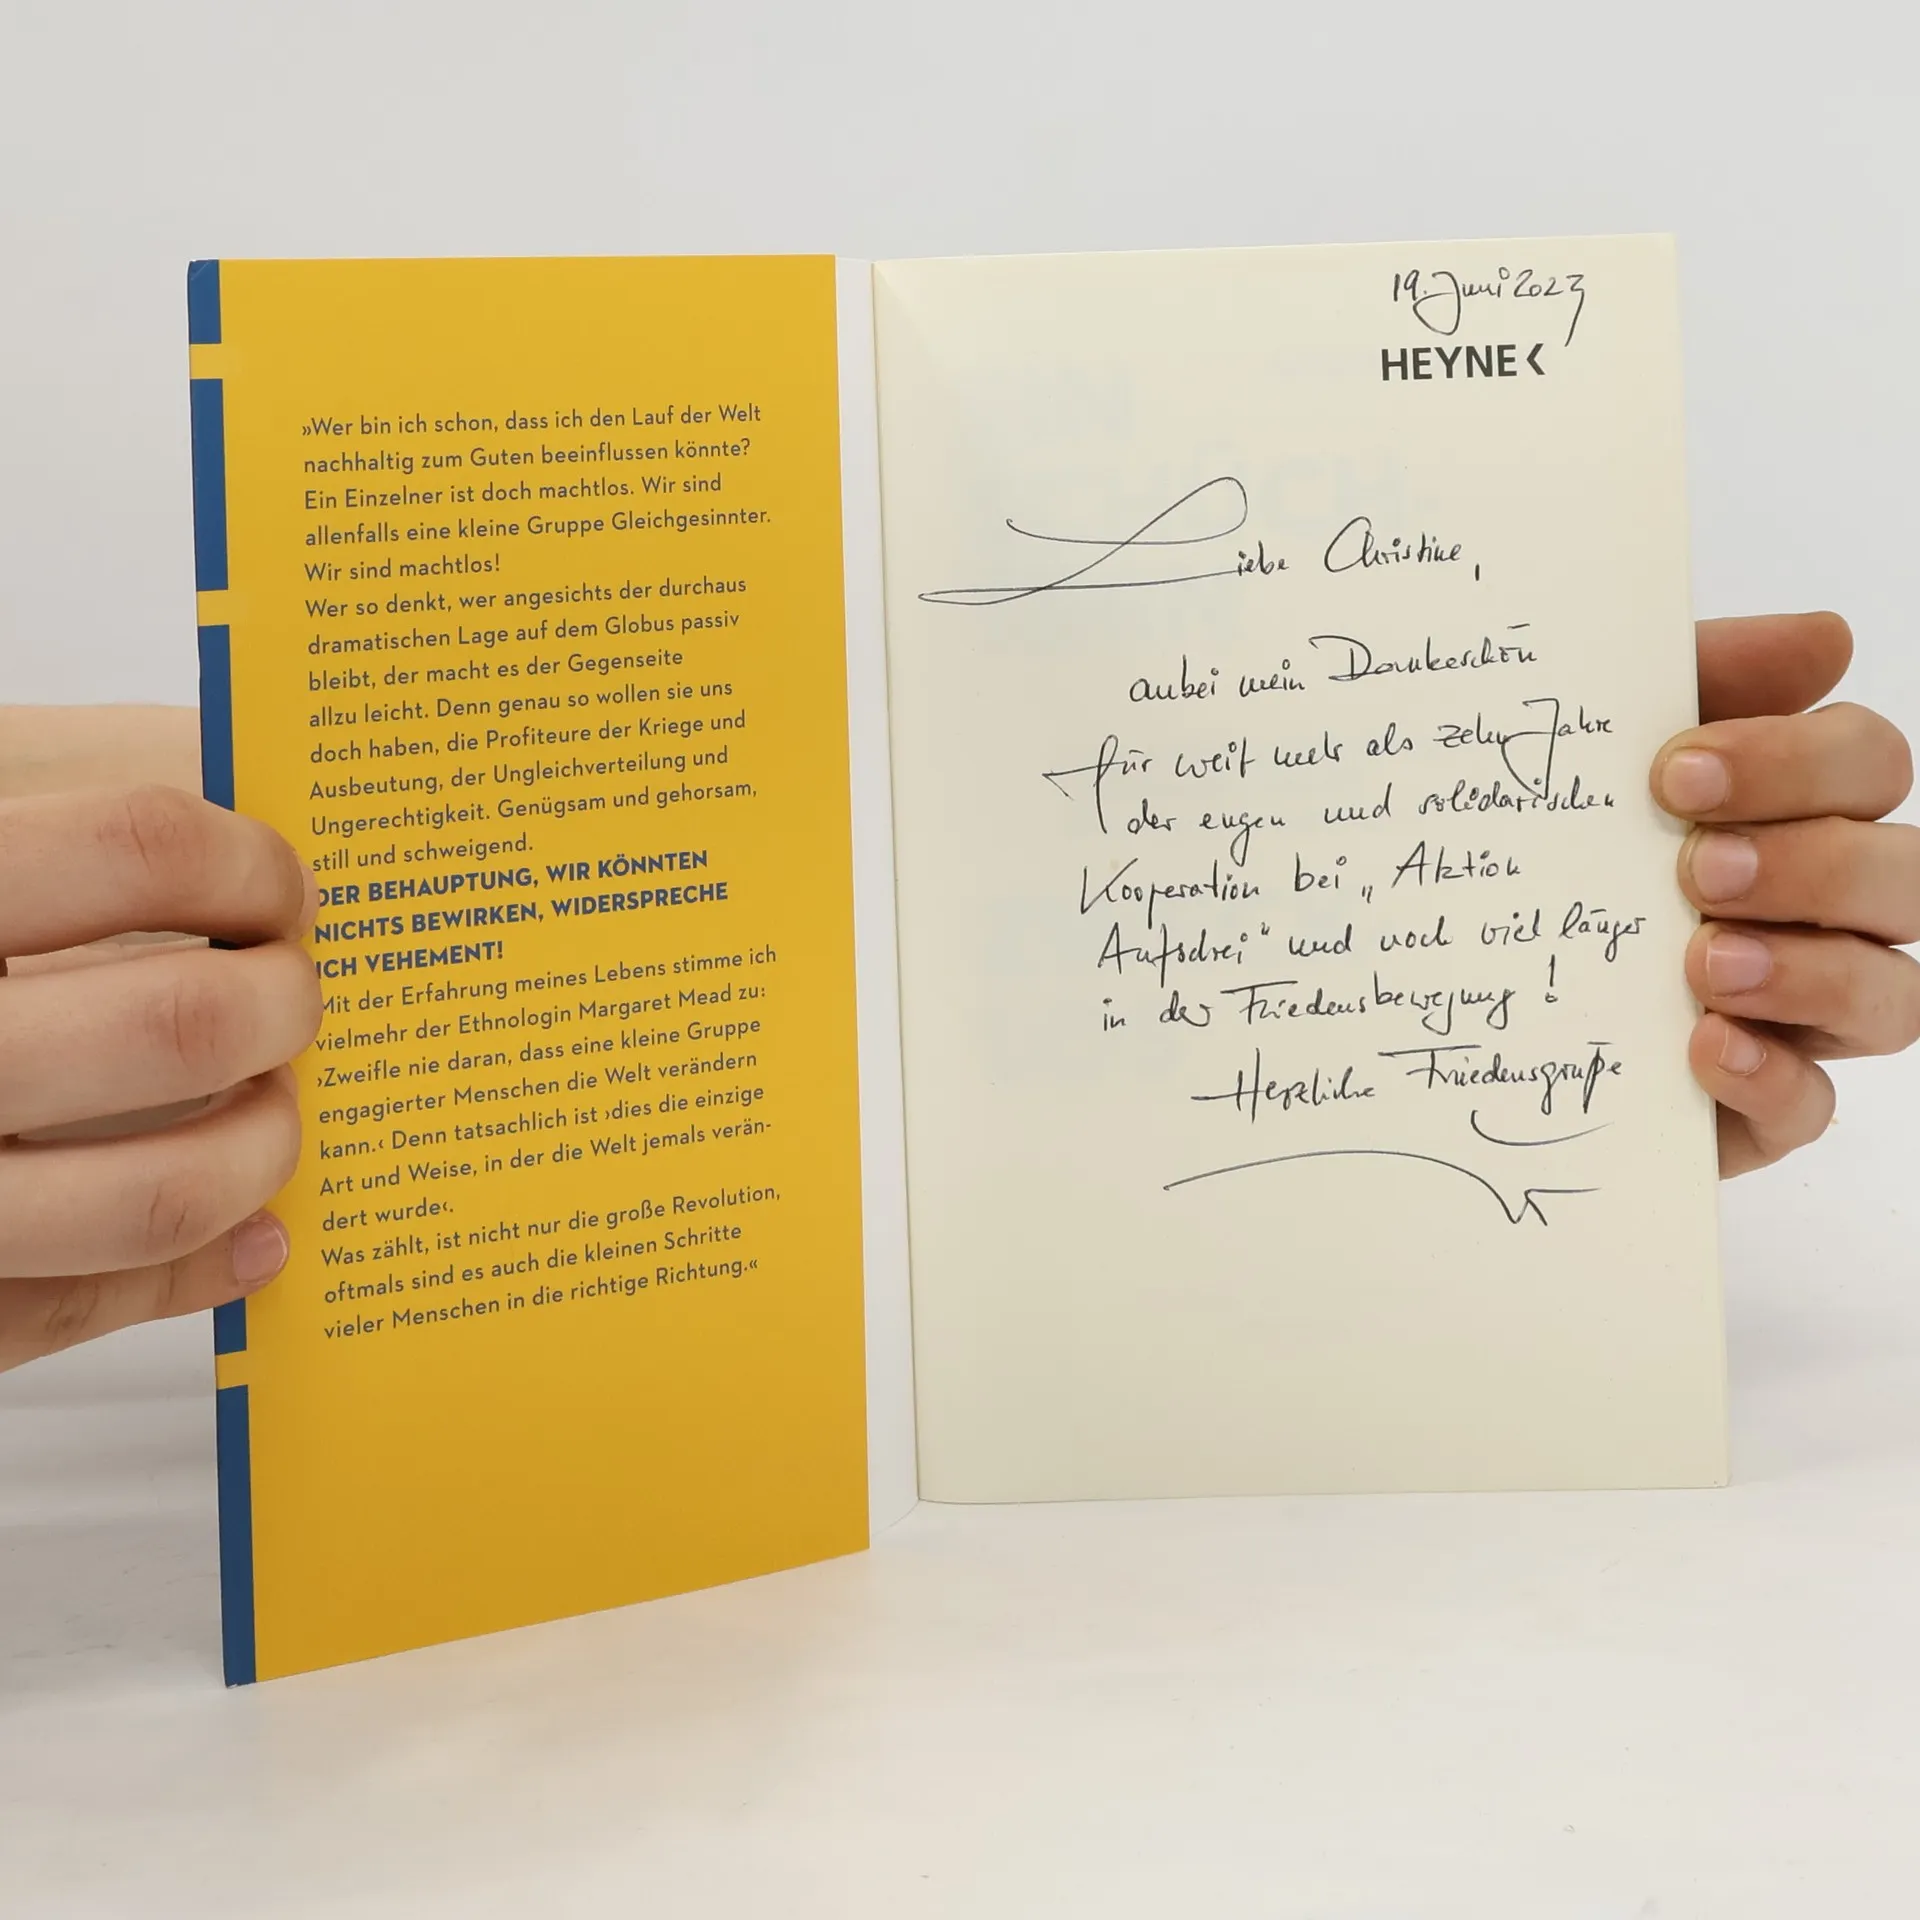 »Wer bin ich schon, dass ich den Lauf der Welt
nachhaltig zum Guten beeinflussen könnte?
Ein Einzelner ist doch machtlos. Wir sind
allenfalls eine kleine Gruppe Gleichgesinnter.
Wir sind machtlos!
Wer so denkt, wer angesichts der durchaus
dramatischen Lage auf dem Globus passiv
bleibt, der macht es der Gegenseite
allzu leicht. Denn genau so wollen sie uns
doch haben, die Profiteure der Kriege und
Ausbeutung, der Ungleichverteilung und
Ungerechtigkeit. Genügsam und gehorsam,
still und schweigend.
DER BEHAUPTUNG, WIR KÖNNTEN
NICHTS BEWIRKEN, WIDERSPRECHE
ICH VEHEMENT!
Mit der Erfahrung meines Lebens stimme ich
vielmehr der Ethnologin Margaret Mead zu:
›Zweifle nie daran, dass eine kleine Gruppe
engagierter Menschen die Welt verändern
kann.‹ Denn tatsachlich ist ›dies die einzige
Art und Weise, in der die Welt jemals verän-
dert wurde‹.
Was zählt, ist nicht nur die große Revolution,
oftmals sind es auch die kleinen Schritte
vieler Menschen in die richtige Richtung.«
19. Juni 2023
HEYNE <
Liebe Christine,
anbei mein Dankeschön
für weit mehr als zehn Jahre
der engen und solidarischen
Kooperation bei „Aktion
Aufschrei" und noch viel länger
in der Friedensbewegung!
Herzliche Friedensgrüße